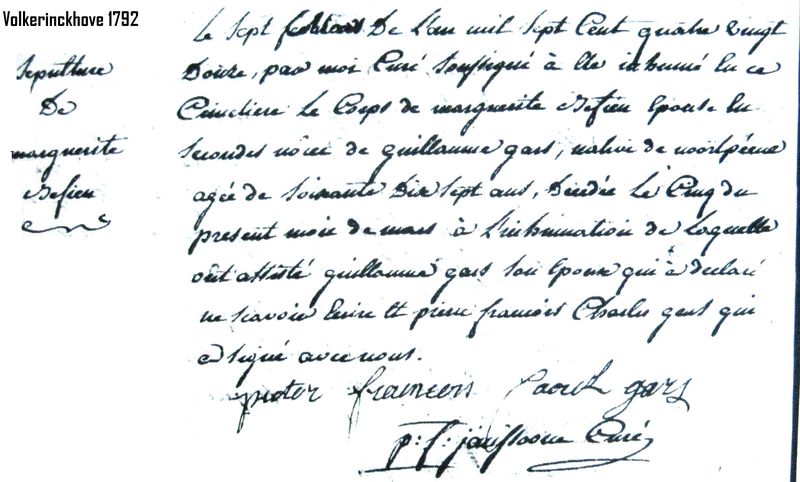 Volkerinckhove 1792
Sepulture
De
marguerite
Le Sept De L'an mil Sept Cent quatre vingt
Douze, par moi Curé Soussigné à Ete inhumé En ce
Cimetiere Le Corps de marguerite Epouse En
Secondes nôces de guillaume gars, native de noortpéene
agée de Soixante Dix Sept ans, Décédée Le Cinq du
present mois de mars à L'inhumation de Laquelle
ont assisté guillaume gars Son Epoux qui à declaré
ne scavoir Ecrire Et pierre francois Charles gars qui
a signé avec nous.
pieter francois gars
p: Curé